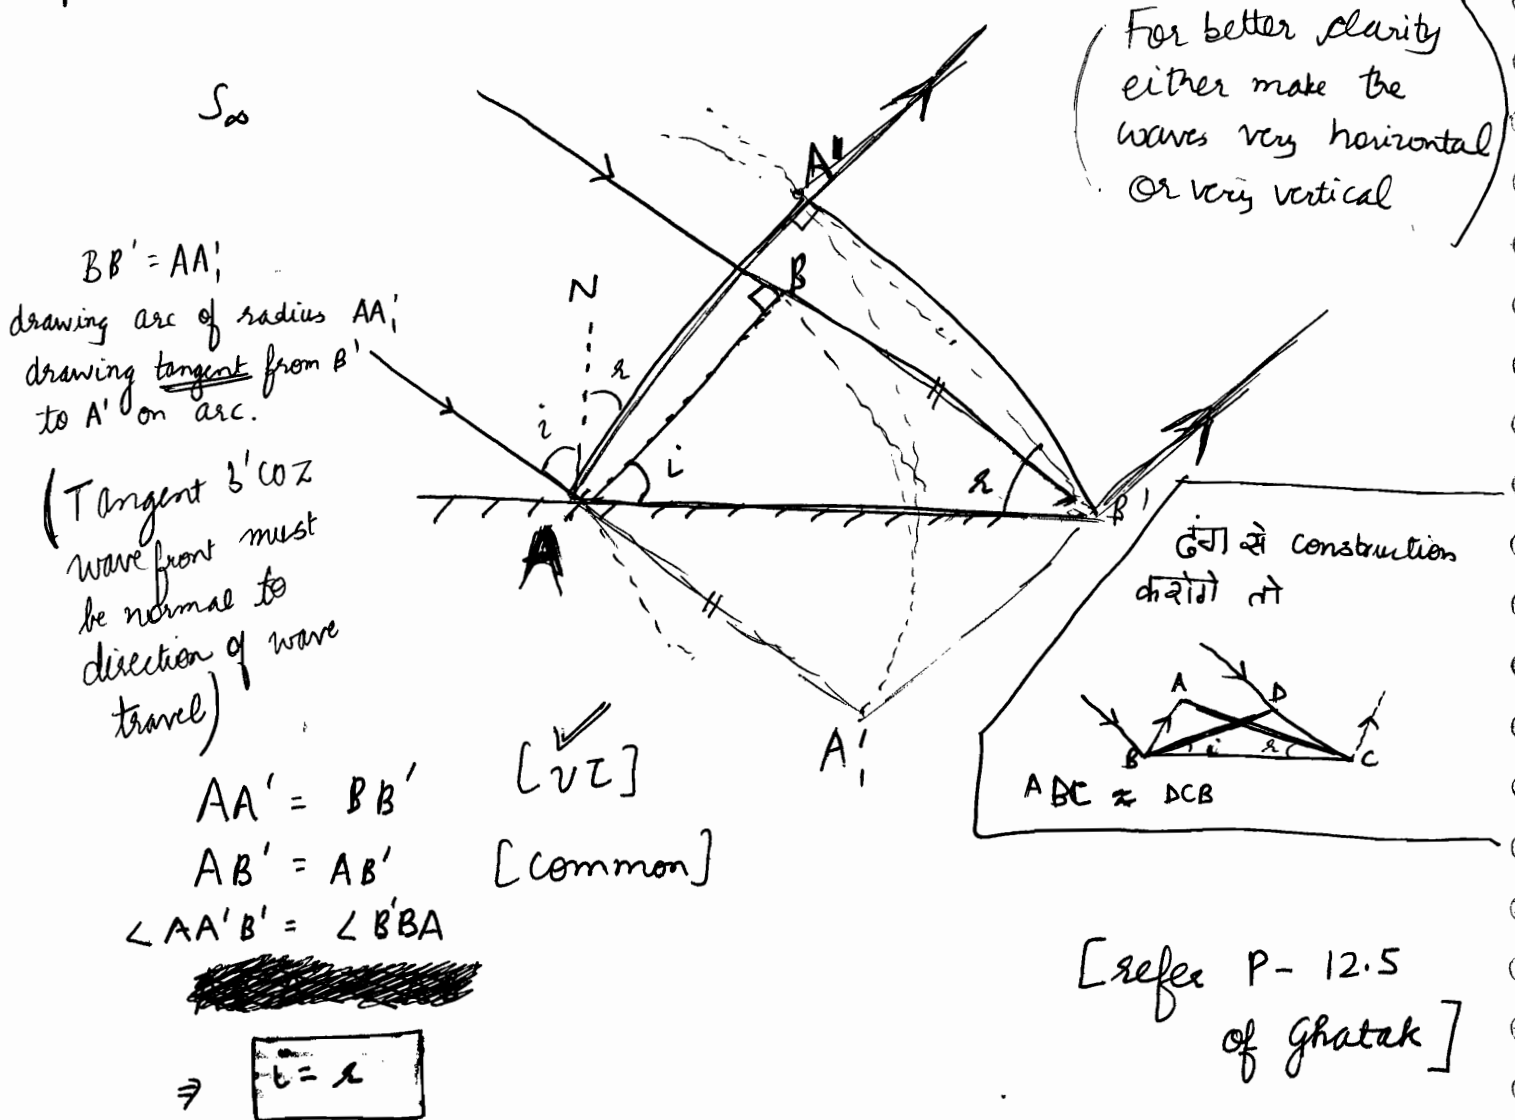 For better clarity
either make the
waves very horizontal
or very vertical
S∞
A''
BB' = AA₁'
drawing arc of radius AA₁'
drawing tangent from B'
to A' on arc.
N
B
r
i
i
r
A
B'
(Tangent B'COZ
wavefront must
be normal to
direction of wave
travel)
A₁'
ढंग से construction
करोगे तो
A
D
B
i
r
C
ABC ≈ DCB
AA' = BB' [vτ]
AB' = AB' [common]
∠AA'B' = ∠B'BA
⇒ i = r
[refer P- 12.5
of Ghatak]